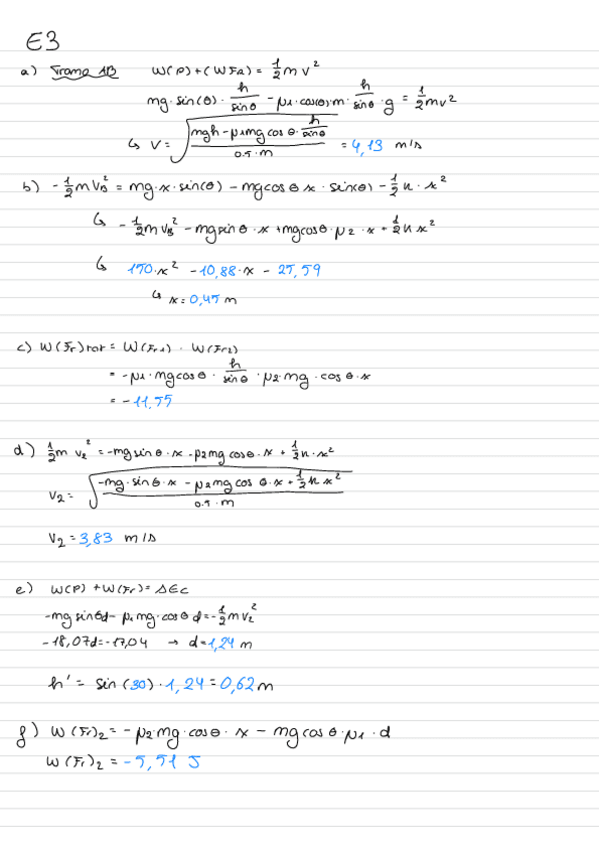 E3
a) Tramo AB W(P)+(WFr) = 1/2 m v²
mg·sin(θ)· h/sinθ - μ1·cos(θ)·m· h/sinθ ·g = 1/2 mv²
↳ V = √((mgh - μ1mg cos θ· h/sinθ)/(0.5·m)) = 4,13 m/s
b) -1/2 m VB² = mg·x·sin(θ) - mgcos θ x · sin(θ) - 1/2 k · x²
↳ -1/2 m VB² - mg sin θ · x + mg cos θ · μ2 · x + 1/2 k x²
↳ 150·x² - 10,88·x - 25,59
↳ x = 0,45 m
c) W(Fr)tot = W(Fr1) · W(Fr2)
= -μ1·mg cos θ · h/sinθ · μ2·mg · cos θ·x
= -11,55
d) 1/2 m v2² = -mg sin θ · x - μ2 mg cos θ · x + 1/2 k · x²
V2 = √((-mg·sin θ·x - μ2 mg cos θ·x + 1/2 k x²)/(0.5·m))
V2 = 3,83 m/s
e) W(P) + W(Fr) = ΔEc
-mg sin θ d - μ1 mg·cos θ d = -1/2 m v2²
-18,07d = -17,04 → d = 1,24 m
h' = sin (30) · 1,24 = 0,62 m
f) W(Fr)2 = -μ2·mg·cos θ · x - mg cos θ · μ1 · d
W(Fr)2 = -5,51 J